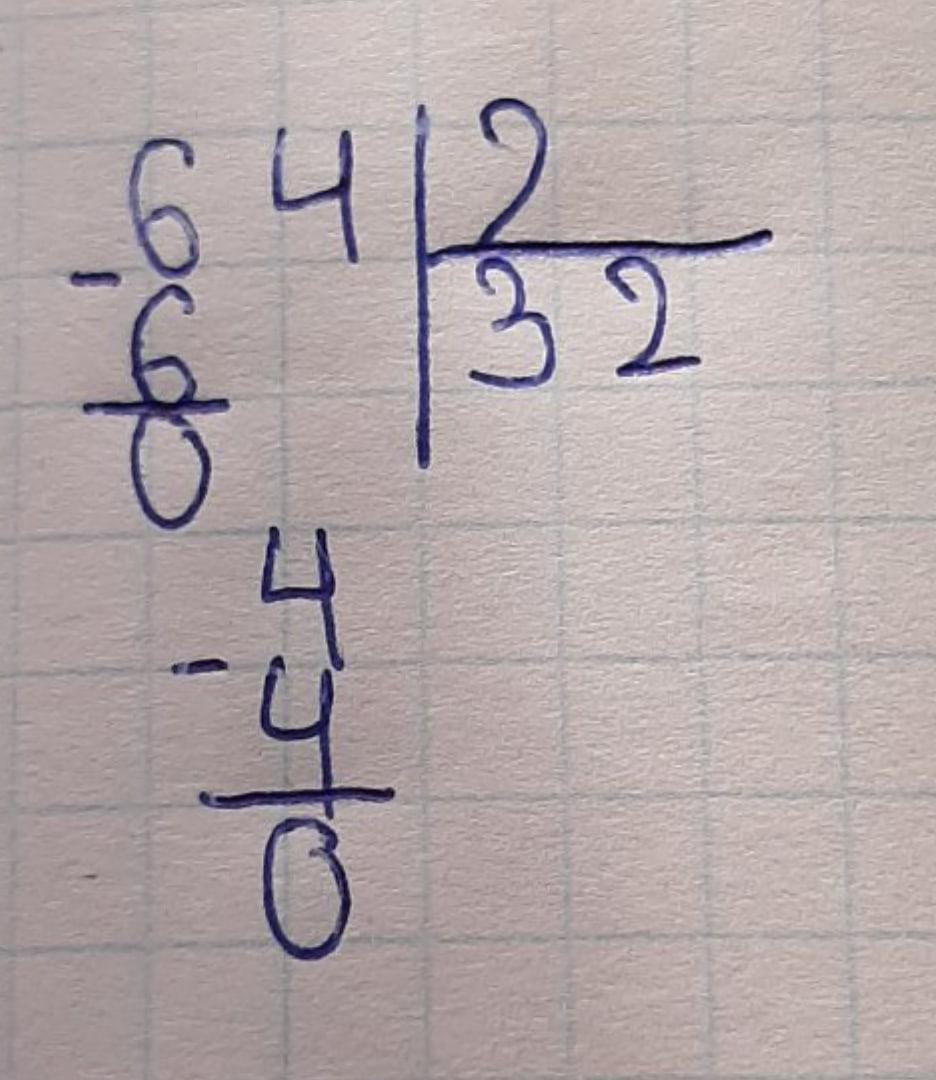 64 2
- 32
6
0
4
-
4
0